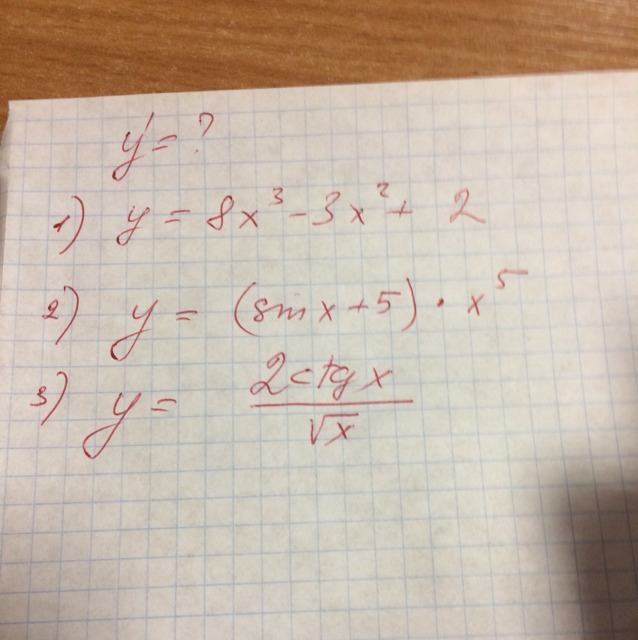 y' = ?
1) y = 8x³ - 3x² + 2
2) y = (sin x + 5) · x⁵
3) y = 2ctg x / √x